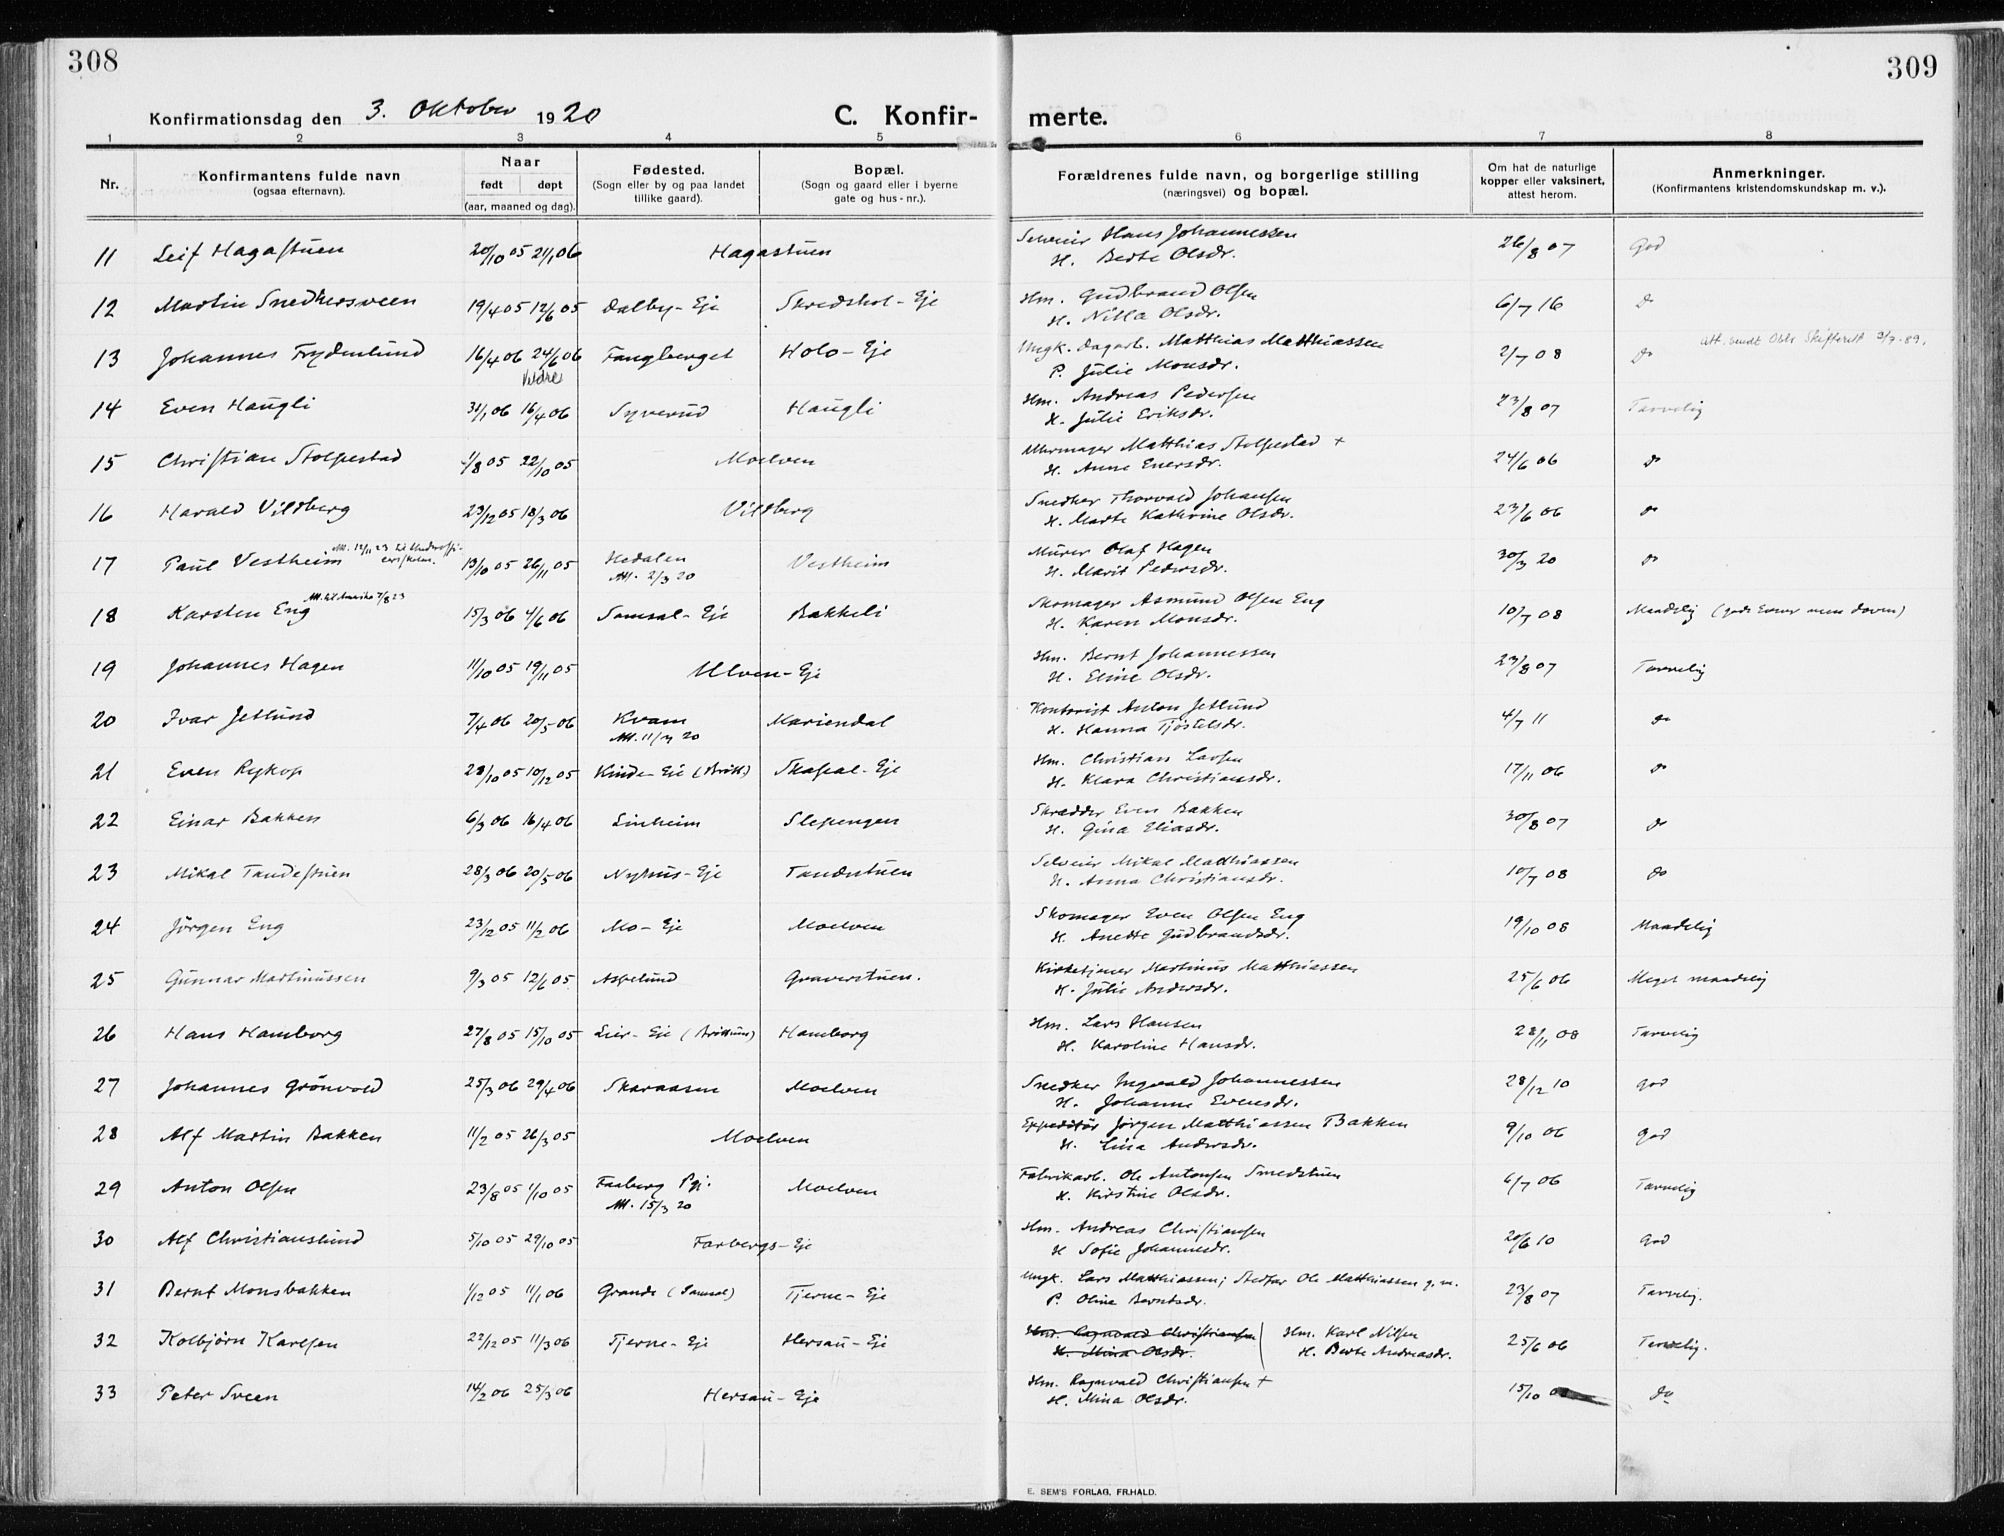 308
309
Konfirmationsdag den 3. Oktober 1920
C. Konfir-
merte.
1 2 3 4 5 6 7 8
Nr.
Konfirmantens fulde navn
(ogsaa efternavn).
Naar
født døpt
(aar, maaned og dag).
Fødested.
(Sogn eller by og paa landet
tillike gaard).
Bopæl.
(Sogn og gaard eller i byerne
gate og hus-nr.).
Forældrenes fulde navn, og borgerlige stilling
(næringsvei) og bopæl.
Om hat de naturlige
kopper eller vaksinert,
attest herom.
Anmerkninger.
(Konfirmantens kristendomskundskap m. v.).
11 Leif Hagastuen 20/10 05 21/1 06 Hagastuen Selveier Hans Johannessen 26/8 07 God
H. Berte Olsdr.
12 Martin Snedkersveen 19/4 05 12/6 05 Dalby-Eje Skredshol-Eje Hm. Gudbrand Olsen 6/7 16 Do
H. Nilla Olsdr.
13 Johannes Frydenlund 16/4 06 24/6 06 Fangberget Holo-Eje Ungk. Dagarb. Matthias Matthiassen 2/7 08 Do Att. sendt Oslo Skifterett 3/7-89.
Veldre P. Julie Monsdr.
14 Even Haugli 31/1 06 16/4 06 Syverud Haugli Hm. Andreas Pedersen 23/8 07 Tarvelig
H. Julie Eriksdr.
15 Christian Stolpestad 1/8 05 22/10 05 Moelven Uhrmager Matthias Stolpestad + 24/6 06 Do
H. Anne Enersdr.
16 Harald Vildberg 23/12 05 18/3 06 Vildberg Snedker Thorvald Johansen 23/6 06 Do
H. Marte Kathrine Olsdr.
17 Paul Vestheim Att. 12/11 23 til Underoffi-
cersskolen. 13/10 05 26/11 05 Hedalen Vestheim Murer Olaf Hagen 30/3 20 Do
Att. 2/3 20 H. Marit Pedersdr.
18 Karsten Eng Att. til Amerika 7/8 23 15/3 06 4/6 06 Samsal-Eje Bakkeli Skomager Asmund Olsen Eng 10/7 08 Maadelig (gode Evner men doven)
H. Karen Monsdr.
19 Johannes Hagen 11/10 05 19/11 05 Ulven-Eje Hm. Bernt Johannessen 23/8 07 Tarvelig
H. Eline Olsdr.
20 Ivar Jetlund 7/4 06 20/5 06 Kvam Mariendal Kontorist Anton Jetlund 4/7 11 Do
Att. 11/3 20 H. Hanna Tjøstelsdr.
21 Even Rykop 28/10 05 10/12 05 Kinde-Eje (Brøtt.) Skapal-Eje Hm. Christian Larsen 17/11 06 Do
H. Klara Christiansdr.
22 Einar Bakken 6/3 06 16/4 06 Linheim Slepengen Skrædder Even Bakken 30/8 07 Do
H. Gina Eliasdr.
23 Mikal Tandestuen 28/3 06 20/5 06 Nyhus-Eje Tandestuen Selveier Mikal Matthiassen 10/7 08 Do
H. Anna Christiansdr.
24 Jörgen Eng 23/12 05 11/2 06 Mo-Eje Moelven Skomager Even Olsen Eng 19/10 08 Maadelig
H. Anette Gudbrandsdr.
25 Gunnar Martinussen 9/3 05 12/6 05 Aspelund Graverstuen. Kirketjener Martinus Matthiassen 25/6 06 Meget maadelig
H. Julie Andersdr.
26 Hans Hamborg 27/8 05 15/10 05 Lier-Eje (Brøttum) Hamborg Hm. Lars Hansen 28/11 08 Tarvelig
H. Karoline Hansdr.
27 Johannes Grönvold 25/3 06 29/4 06 Skaraasen Moelven Snedker Ingvald Johannessen 28/12 10 God
H. Johanne Evensdr.
28 Alf Martin Bakken 11/2 05 26/3 05 Moelven Expeditör Jörgen Matthiassen Bakken 9/10 06 God
H. Lina Andersdr.
29 Anton Olsen 23/8 05 1/10 05 Faaberg Pgj. Moelven Fabrikarb. Ole Antonsen Smedstuen 6/7 06 Tarvelig
Att. 15/3 20 H. Kirstine Olsdr.
30 Alf Christianslund 5/10 05 29/10 05 Farbergs-Eje Hm. Andreas Christiansen 20/6 10 God
H. Sofie Johannesdr.
31 Bernt Monsbakken 1/12 05 11/1 06 Grande (Samsal) Tjerne-Eje Ungk. Lars Matthiassen; Stedfar Ole Matthiassen g. m. 23/8 07 Tarvelig.
P. Oline Berntsdr.
32 Kolbjörn Karlsen 22/12 05 11/3 06 Tjerne-Eje Hersau-Eje Hm. Ragnvald Christiansen Hm. Karl Nilsen 25/6 06 Tarvelig.
H. Mina Olsdr. H. Berte Andreasdr.
33 Peter Sveen 14/2 06 25/3 06 Hersau-Eje Hm. Ragnvald Christiansen + 15/10 Do
H. Mina Olsdr.
E. SEM'S FORLAG, FR.HALD.